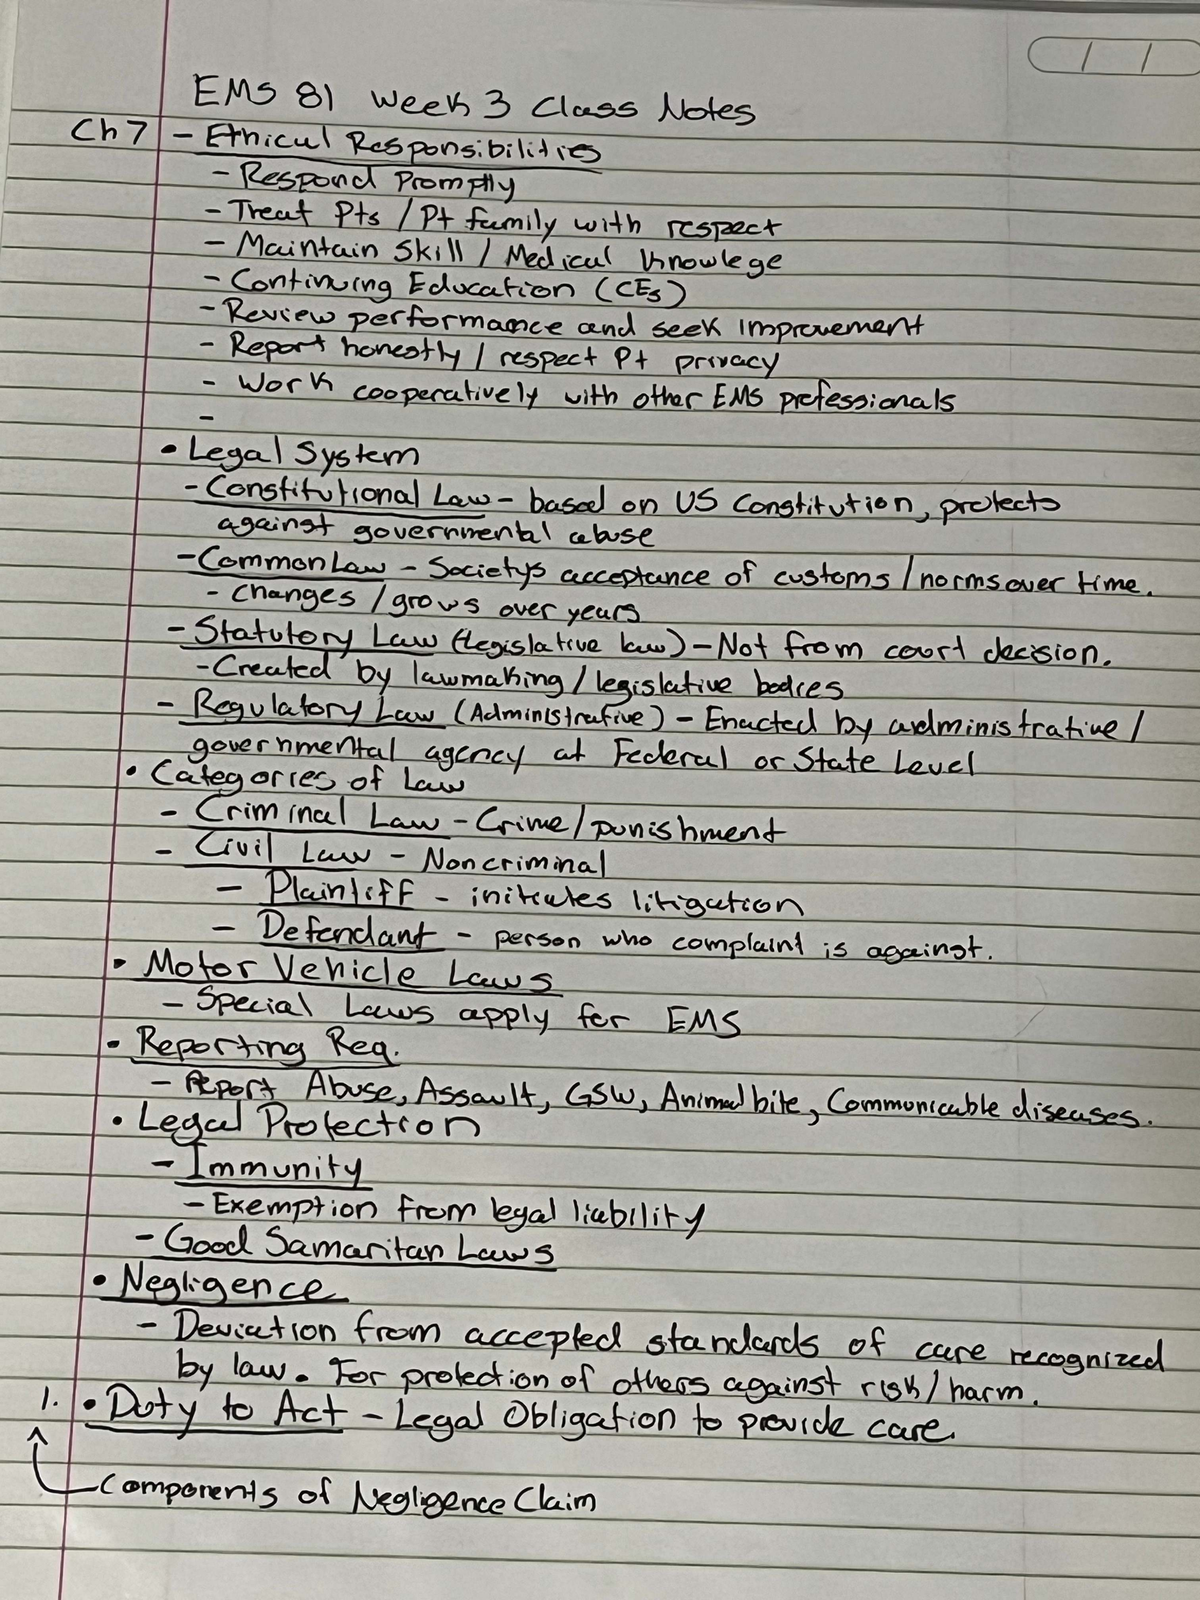 EMS 81 Week 3 Class Notes
Ch 7 - Ethical Responsibilities
- Respond Promptly
- Treat Pts / Pt family with respect
- Maintain Skill / Medical Knowlege
- Continuing Education (CEs)
- Review performance and seek improvement
- Report honestly / respect Pt privacy
- Work cooperatively with other EMS professionals
-
• Legal System
- Constitutional Law - based on US Constitution, protects
against governmental abuse
- Common Law - Societys acceptance of customs / norms over time.
- Changes / grows over years
- Statutory Law (Legislative law) - Not from court decision.
- Created by lawmaking / legislative bodies
- Regulatory Law (Administrative) - Enacted by administrative /
governmental agency at Federal or State Level
• Categories of Law
- Criminal Law - Crime / punishment
- Civil Law - Noncriminal
- Plaintiff - initiates litigation
- Defendant - person who complaint is against.
• Motor Vehicle Laws
- Special Laws apply for EMS
• Reporting Req.
- Report Abuse, Assault, GSW, Animal bite, Communicable diseases.
• Legal Protection
- Immunity
- Exemption from legal liability
- Good Samaritan Laws
• Negligence
- Deviation from accepted standards of care recognized
by law. For protection of others against risk / harm.
1. • Duty to Act - Legal Obligation to provide care.
Components of Negligence Claim